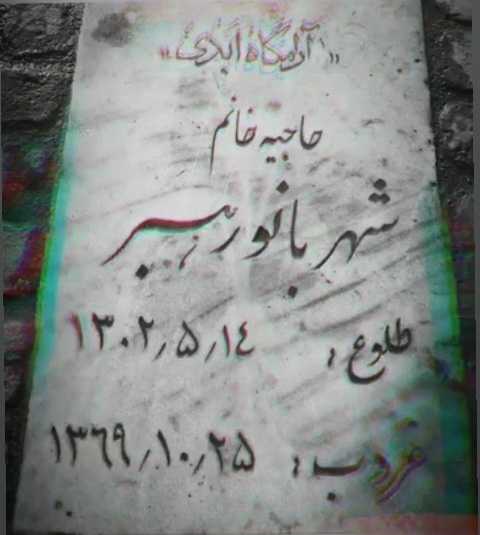 «آرامگاه ابدی»
حاجیه خانم
شهر بانو رهبر
طلوع : ۱۳۰۲/۵/۱٤
غروب : ۱۳٦۹/۱۰/۲۵